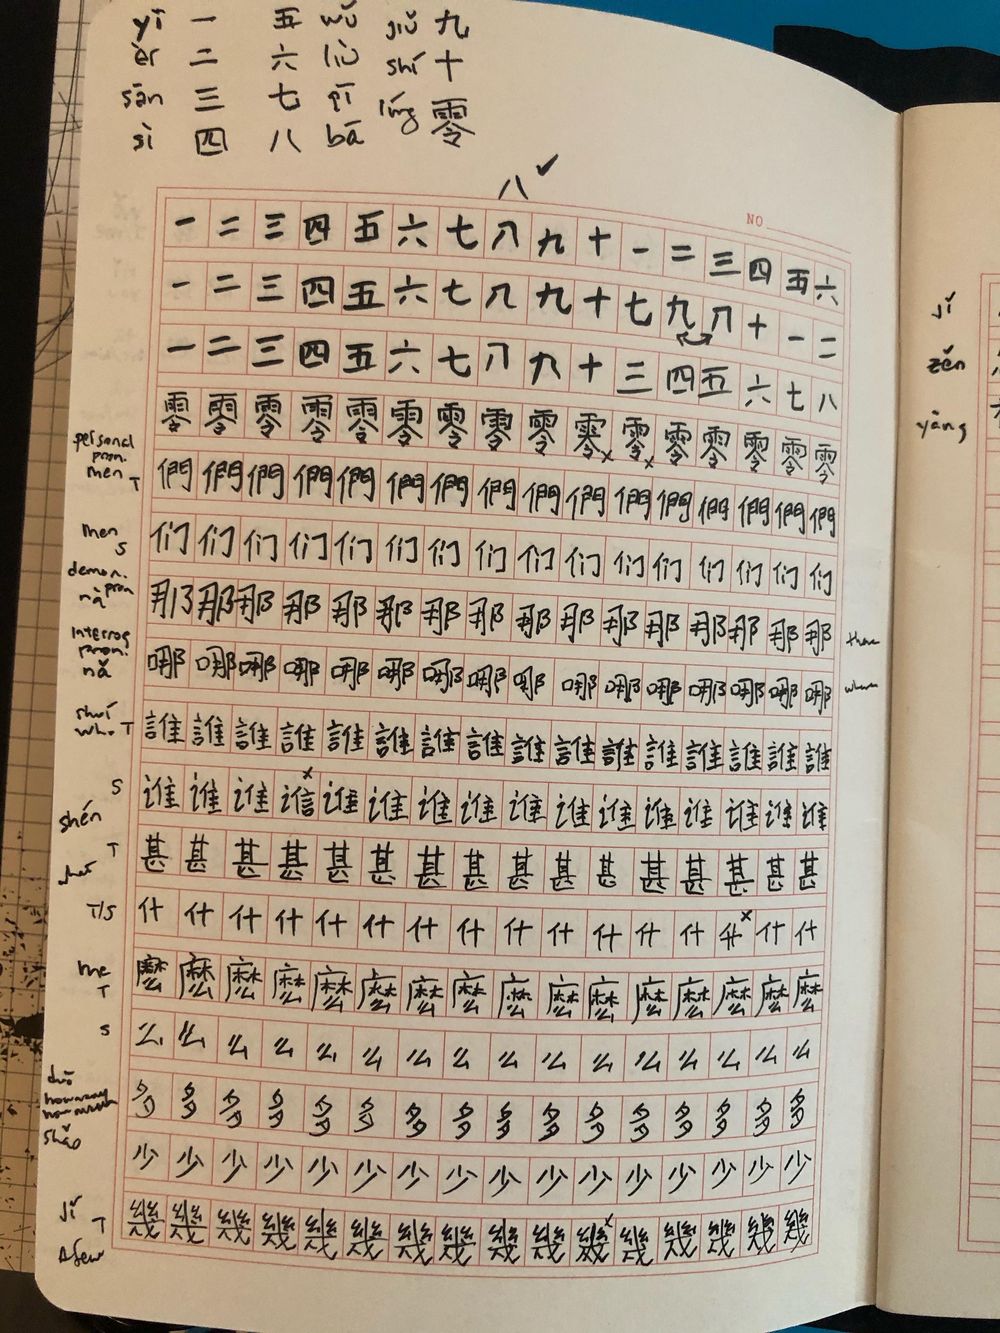 yī 一 五 wǔ jiǔ 九
èr 二 六 liù shí 十
sān 三 七 qī líng 零
sì 四 八 bā
八 ✓
NO
一 二 三 四 五 六 七 八 九 十 一 二 三 四 五 六
一 二 三 四 五 六 七 八 九 十 七 九 八 十 一 二
一 二 三 四 五 六 七 八 九 十 三 四 五 六 七 八
零 零 零 零 零 零 零 零 零 零 x 零 x 零 零 零 零 零
personal pron. men T 們 們 們 們 們 們 們 們 們 們 們 們 們 們 們 們
men S 们 们 们 们 们 们 们 们 们 们 们 们 们 们 们 们
demon. pron nà 那 那 那 那 那 那 那 那 那 那 那 那 那 那 那 那
interrog pron. nǎ 哪 哪 哪 哪 哪 哪 哪 哪 哪 哪 哪 哪 哪 哪 哪 哪
shuí who T 誰 誰 誰 誰 誰 誰 誰 誰 誰 誰 誰 誰 誰 誰 誰 誰
S 谁 谁 谁 信 x 谁 谁 谁 谁 谁 谁 谁 谁 谁 谁 谁 谁
shén what T 甚 甚 甚 甚 甚 甚 甚 甚 甚 甚 甚 甚 甚 甚 甚 甚
T/S 什 什 什 什 什 什 什 什 什 什 什 什 什 什 x 什 什
me T 麼 麼 麼 麼 麼 麼 麼 麼 麼 麼 麼 麼 麼 麼 麼 麼
S 么 么 么 么 么 么 么 么 么 么 么 么 么 么 么 么
duō how many how much 多 多 多 多 多 多 多 多 多 多 多 多 多 多 多 多
shǎo 少 少 少 少 少 少 少 少 少 少 少 少 少 少 少 少
jǐ T A few 幾 幾 幾 幾 幾 幾 幾 幾 幾 幾 幾 x 幾 幾 幾 幾 幾
jǐ
zěn
yàng